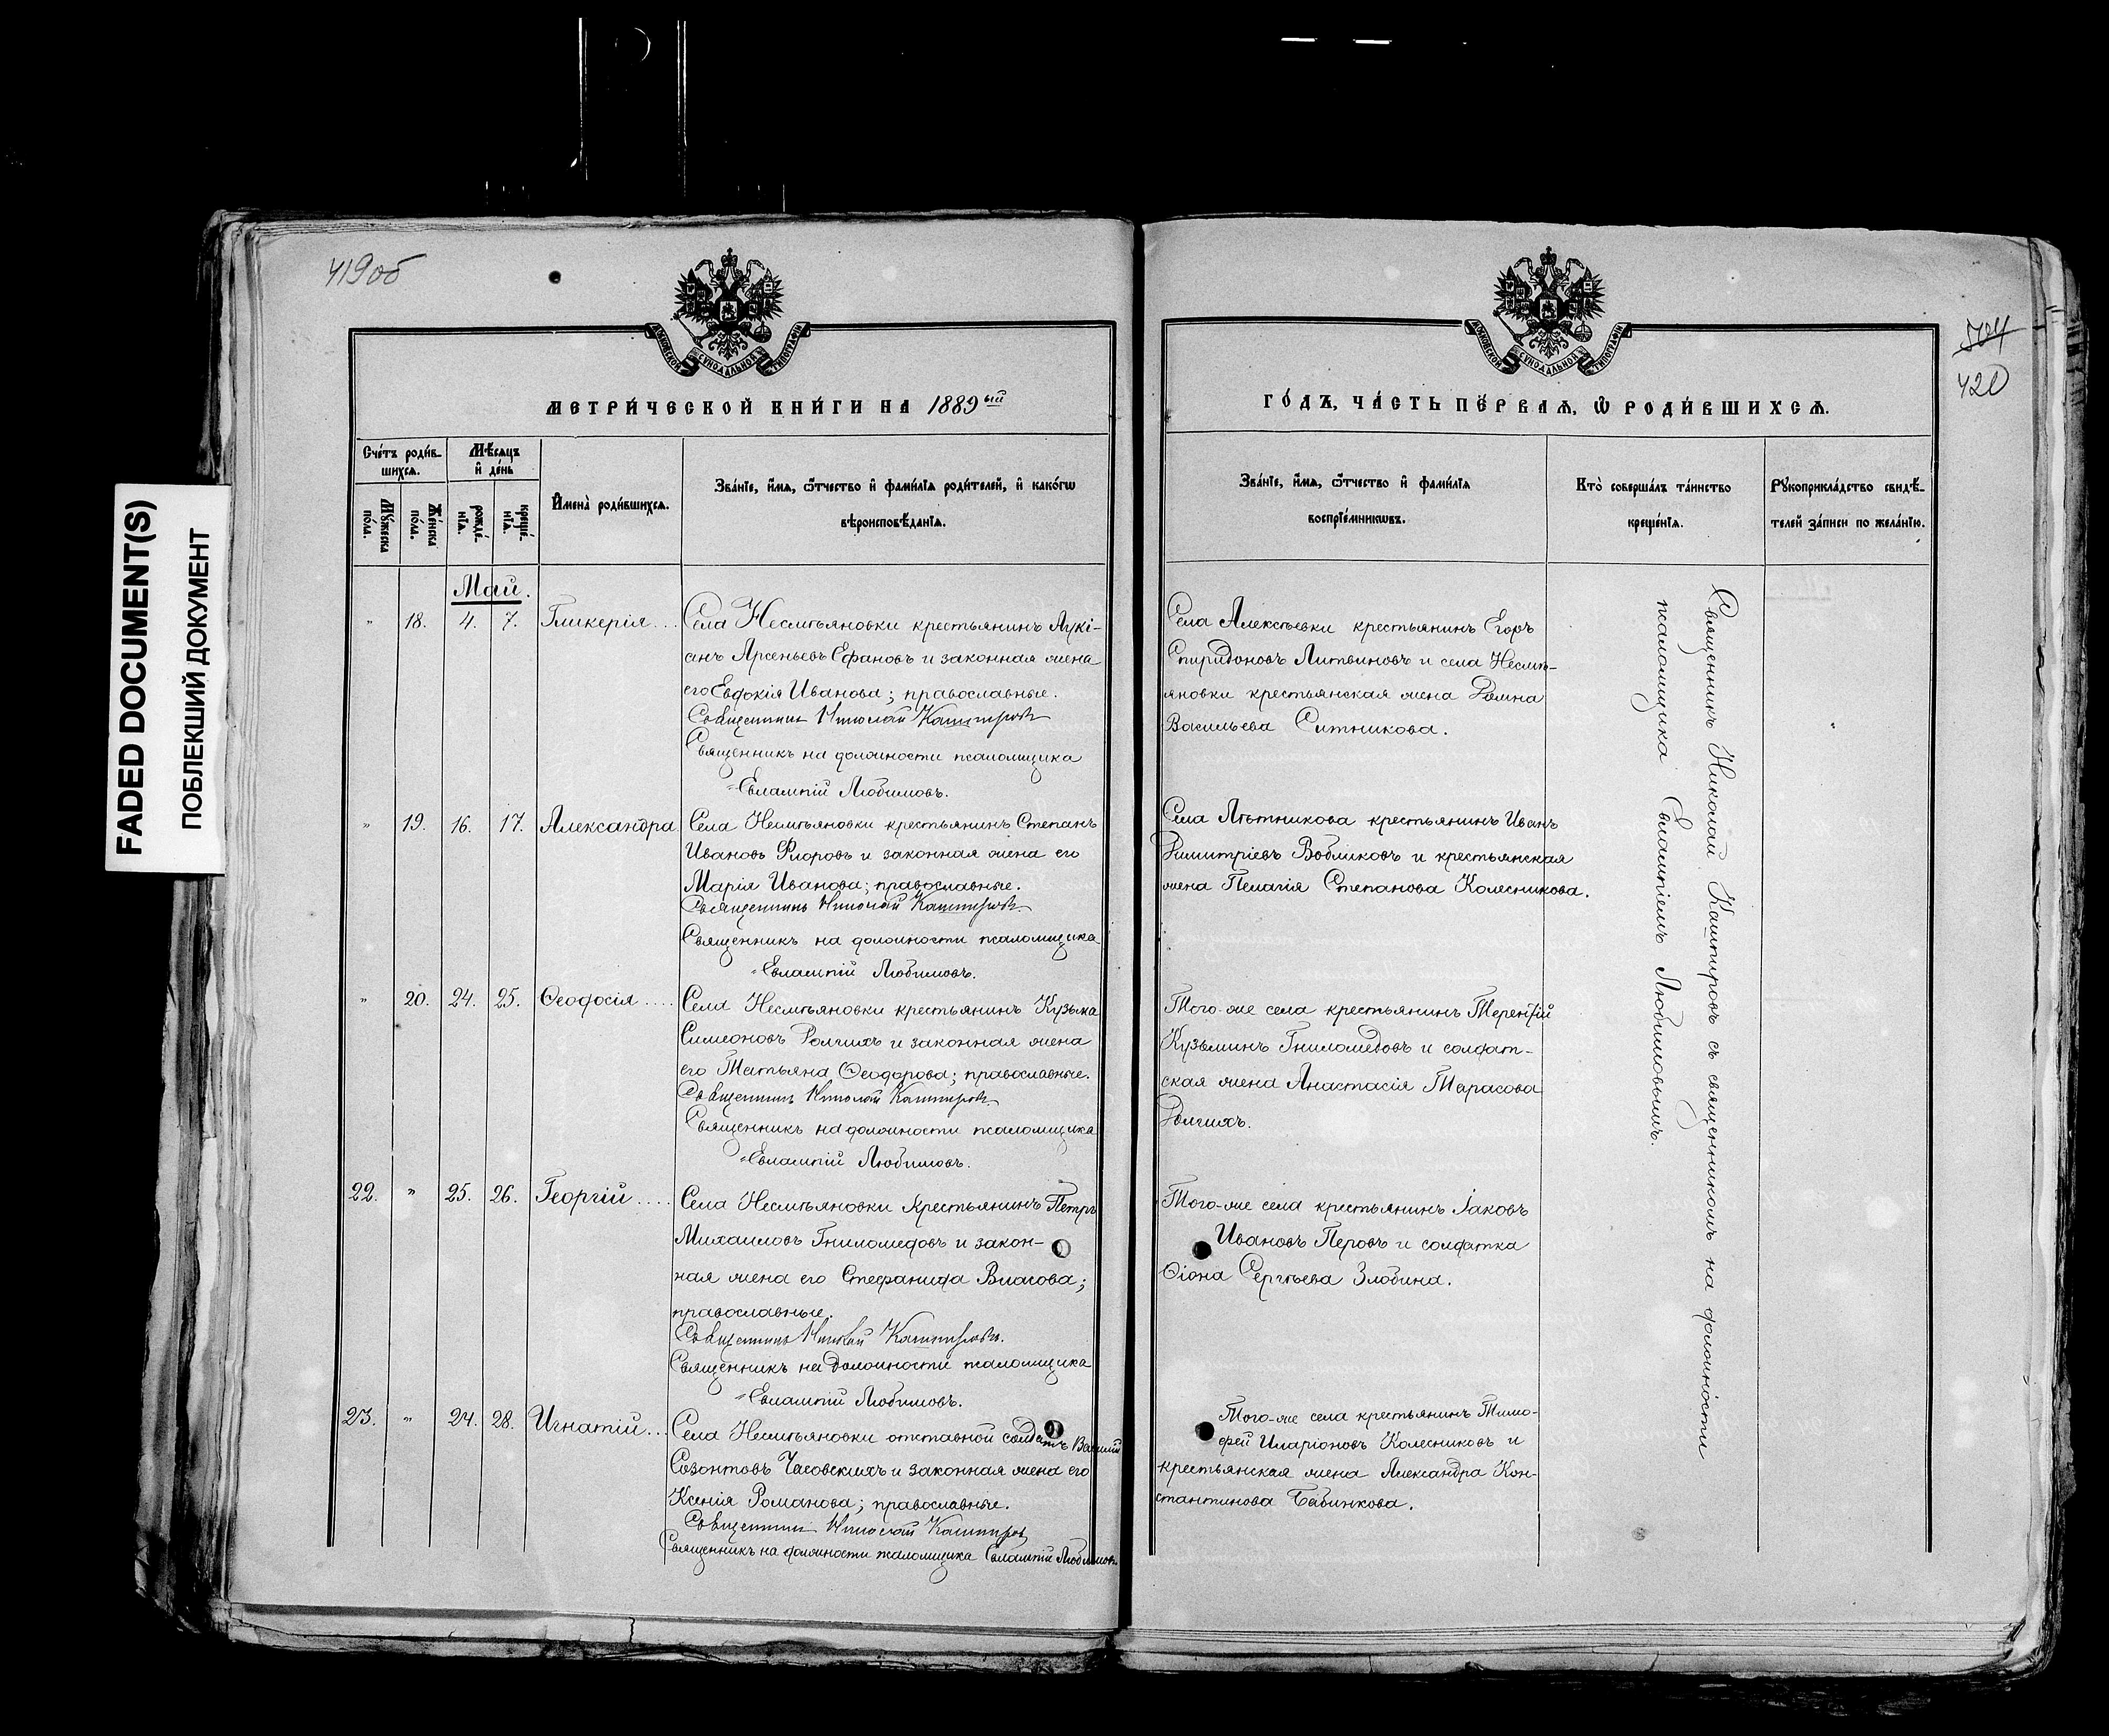 FADED DOCUMENT(S)
ПОБЛЕКШИЙ ДОКУМЕНТ
419об
МОСКОВСКОЙ СѴНОДАЛЬНОЙ ТИПОГРАФІИ
МЕТРИ́ЧЕСКОЙ КНИ́ГИ НА 1889ый
Сче́тъ роди́в-
шихсѧ.
Мѣ́сѧцъ
и҆ де́нь
Мꙋ́жеска
по́ла.
Же́нска
по́ла.
рожде́-
нїѧ.
креще́-
нїѧ.
И҆мена̀ роди́вшихсѧ.
Зва́нїе, и҆́мѧ, ѻ҆́тчество и҆ фами́лїѧ роди́телей, и҆ како́гѡ
вѣроисповѣ́данїѧ.
Май.
" 18. 4. 7. Гликерія...
Села Несмѣяновки крестьянинъ Лукі-
анъ Арсеньевъ Ефановъ и законная жена
его Евдокія Иванова; православные.
Священникъ Николай Каштировъ
Священникъ на должности псаломщика
Евлампій Любимовъ.
" 19. 16. 17. Александра
Села Несмѣяновки крестьянинъ Степанъ
Ивановъ Флоровъ и законная жена его
Марія Иванова; православные.
Священникъ Николай Каштировъ
Священникъ на должности псаломщика
Евлампій Любимовъ.
" 20. 24. 25. Ѳеодосія....
Села Несмѣяновки крестьянинъ Кузьма
Симеоновъ Долгихъ и законная жена
его Татьяна Ѳеодорова; православные.
Священникъ Николай Каштировъ
Священникъ на должности псаломщика
Евлампій Любимовъ.
22. " 25. 26. Георгій....
Села Несмѣяновки крестьянинъ Петръ
Михаиловъ Гниломедовъ и закон-
ная жена его Стефанида Власова;
православные.
Священникъ Николай Каштировъ.
Священникъ на должности псаломщика
Евлампій Любимовъ.
23. " 24. 28. Игнатій...
Села Несмѣяновки отставной солдатъ Василій
Созонтовъ Часовскихъ и законная жена его
Ксенія Романова; православные.
Священникъ Николай Каштировъ
Священникъ на должности псаломщика Евлампій Любимовъ
504
420
МОСКОВСКОЙ СѴНОДАЛЬНОЙ ТИПОГРАФІИ
ГО́ДЪ, ЧА́СТЬ ПЕ́РВАѦ, Ѡ҆ РОДИ́ВШИХСѦ.
Зва́нїе, и҆́мѧ, ѻ҆́тчество и҆ фами́лїѧ
воспрїе́мникѡвъ.
Кто̀ соверша́лъ та́инство
креще́нїѧ.
Рꙋкоприкла́дство свидѣ́-
телей за́писи по жела́нїю.
Села Алексѣевки крестьянинъ Егоръ
Спиридоновъ Литвиновъ и села Несмѣ-
яновки крестьянская жена Домна
Васильева Ситникова.
Села Лѣтникова крестьянинъ Иванъ
Димитріевъ Вобликовъ и крестьянская
жена Пелагія Степанова Колесникова.
Того-же села крестьянинъ Терентій
Кузьминъ Гниломедовъ и солдат-
ская жена Анастасія Тарасова
Долгихъ.
Того-же села крестьянинъ Іаковъ
Ивановъ Перовъ и солдатка
Ѳіона Сергѣева Злобина.
Того-же села крестьянинъ Тимо-
фей Иларіоновъ Колесниковъ и
крестьянская жена Александра Кон-
стантинова Бабинкова.
Священникъ Николай Каштировъ съ священникомъ на должности
псаломщика Евлампіемъ Любимовымъ.